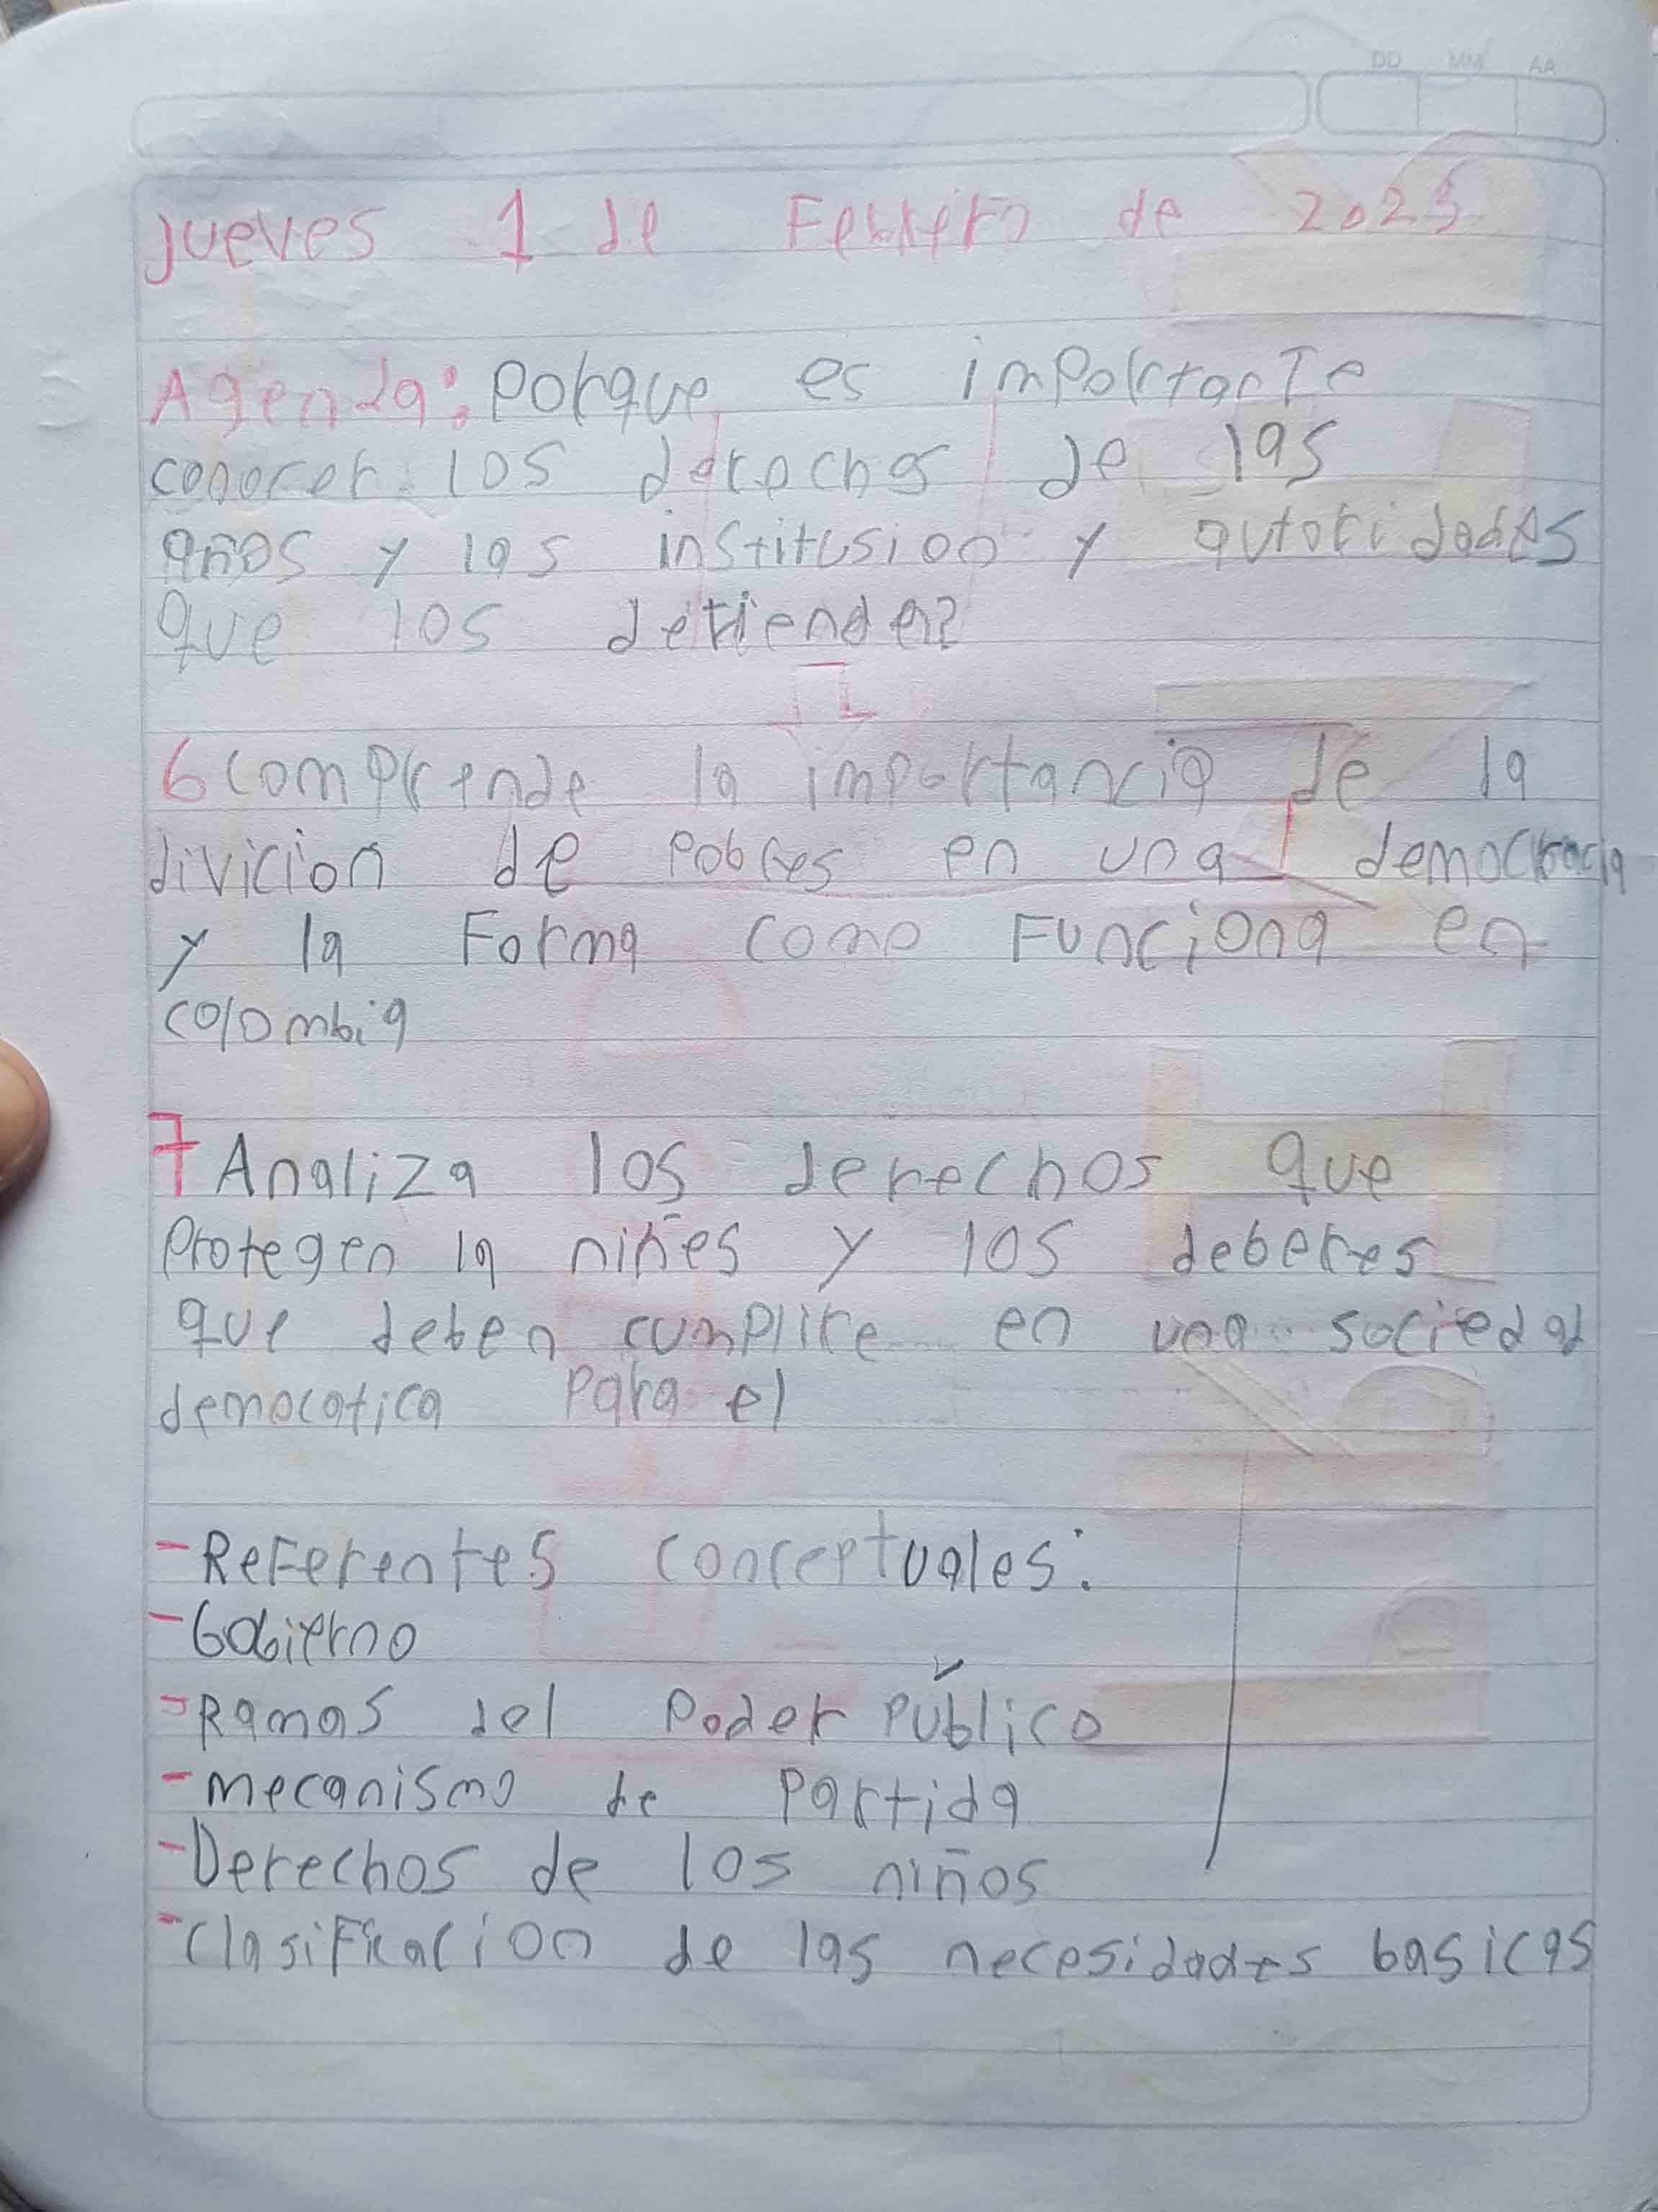 DD MM AA
jueves 1 de Febrero de 2023
Agenda: porque es importante
conocer los derechos de las
años y las institusion y autoridades
que los defienden?
6 Comprende la importancia de la
divicion de pobres en una democracia
y la Forma como Funciona en
colombia
7 Analiza los derechos que
protegen la niñes y los deberes
que deben cumplire en una sociedad
democatica para el
- Referentes conceptuales:
- Gobierno
- Ramas del Poder Público
- mecanismo de Partida
- Derechos de los niños
- clasificacion de las necesidades basicas